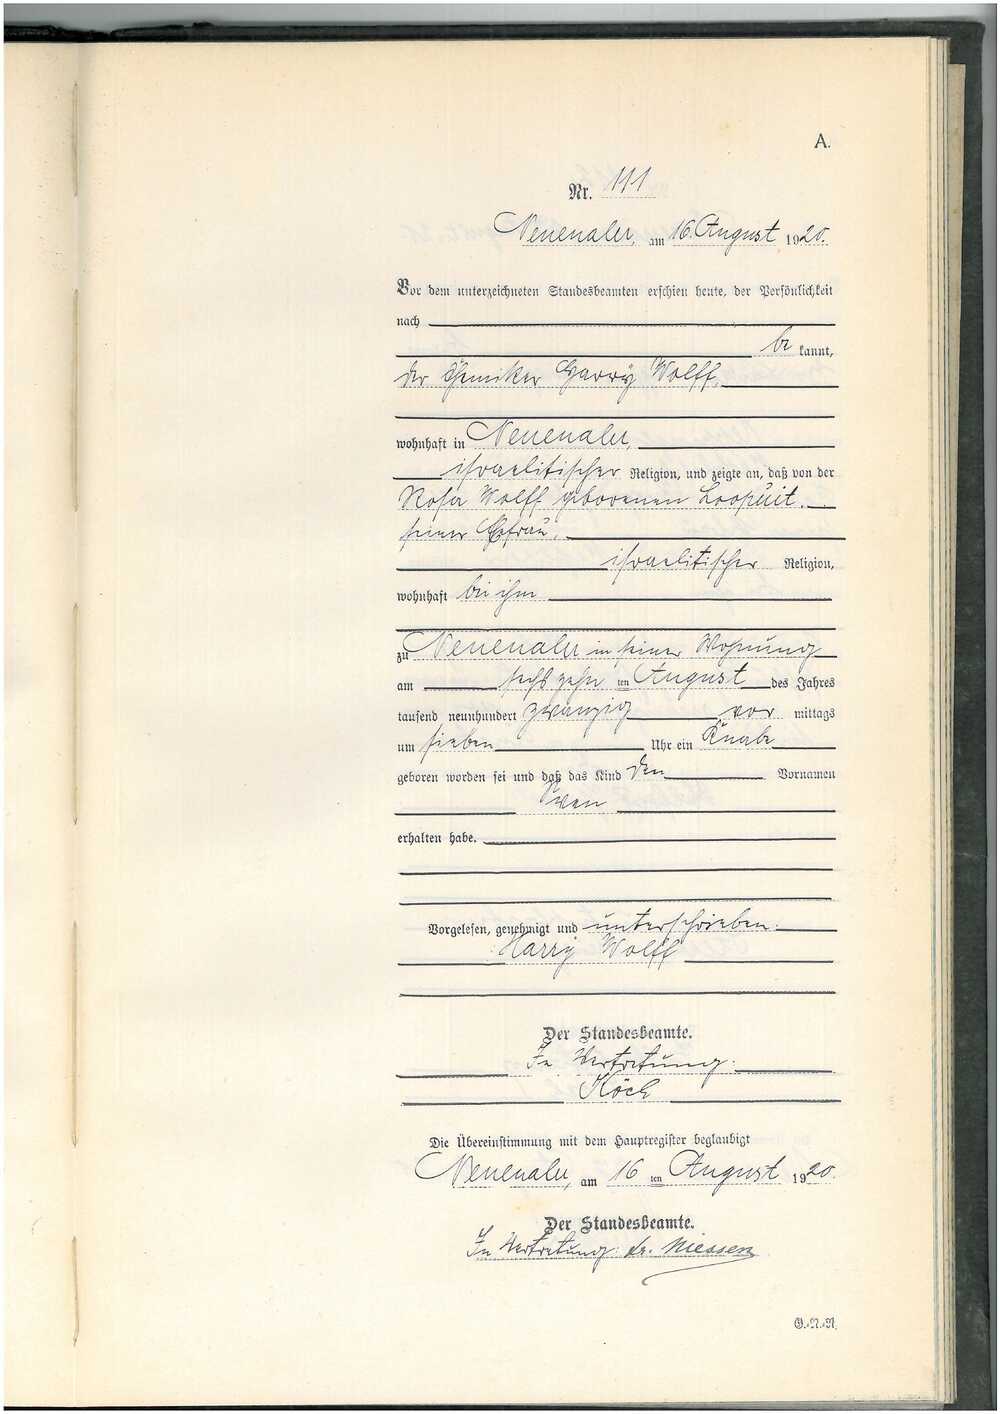 A.
Nr. 111
Neuenahr, am 16. August 1920.
Vor dem unterzeichneten Standesbeamten erschien heute, der Persönlichkeit
nach
be kannt,
der Chemiker Harry Wolff,
wohnhaft in Neuenahr,
israelitischer Religion, und zeigte an, daß von der
Rosa Wolff geborenen Loopuit,
seiner Ehefrau,
israelitischer Religion,
wohnhaft bei ihm
zu Neuenahr in seiner Wohnung
am sechszehn ten August des Jahres
tausend neunhundert zwanzig vor mittags
um sieben Uhr ein Knabe
geboren worden sei und daß das Kind den Vornamen
Sven
erhalten habe.
Vorgelesen, genehmigt und unterschrieben.
Harry Wolff
Der Standesbeamte.
In Vertretung.
Koch
Die Übereinstimmung mit dem Hauptregister beglaubigt
Neuenahr, am 16 ten August 1920.
Der Standesbeamte.
In Vertretung: Dr. Niessen
G.-N.-N.